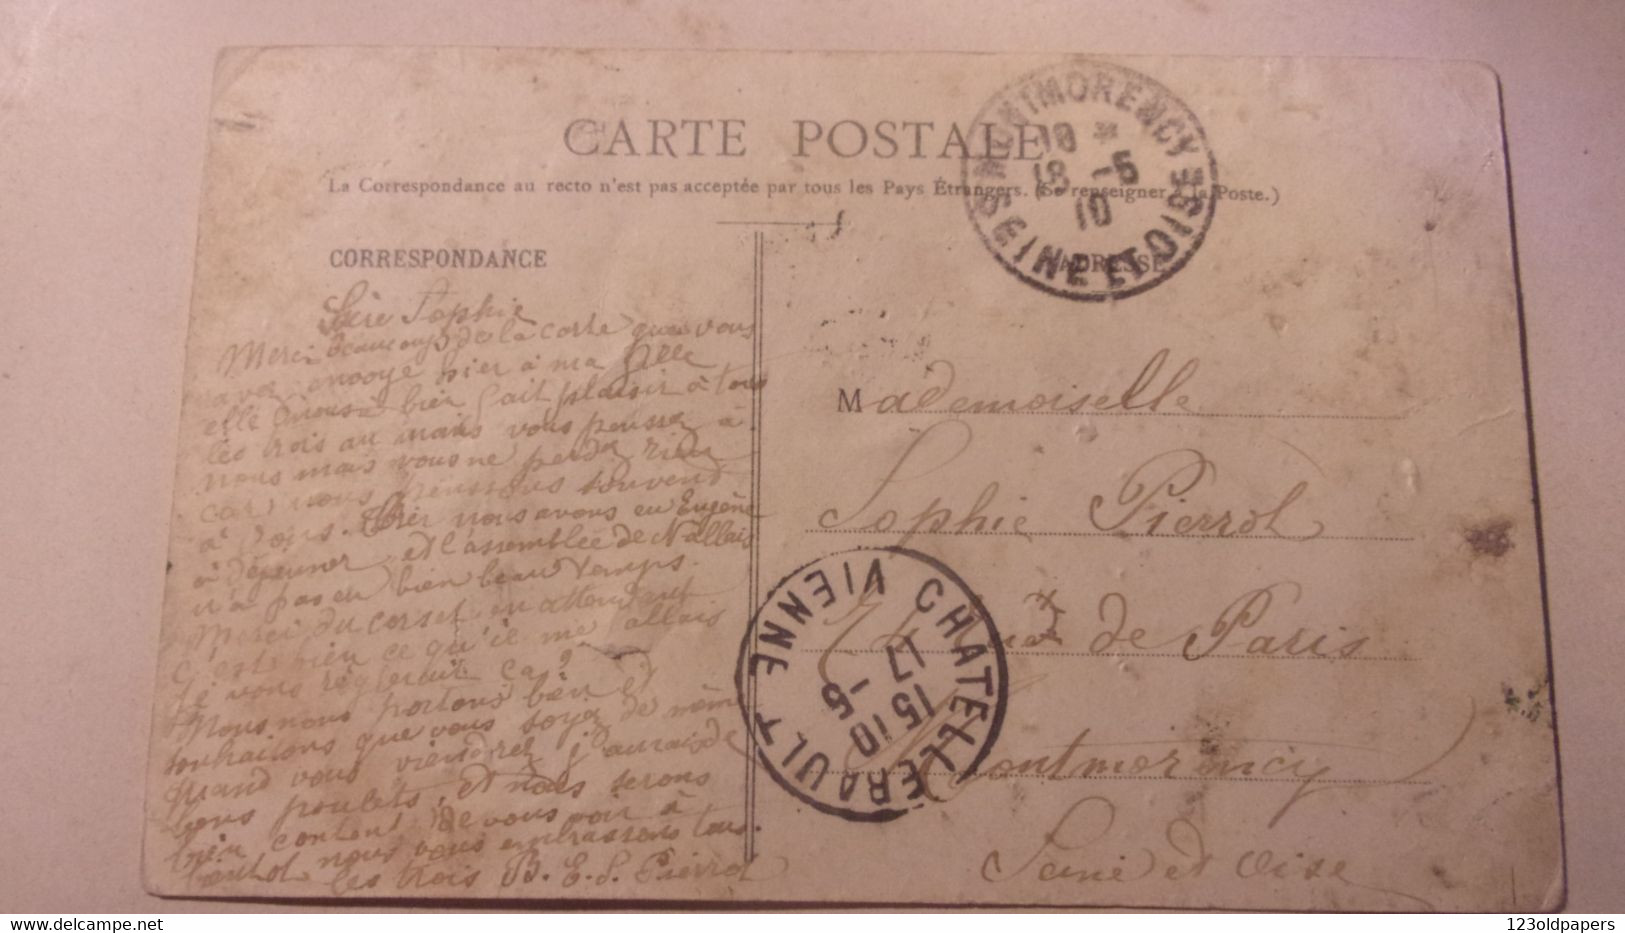 CARTE POSTALE
La Correspondance au recto n'est pas acceptée par tous les Pays Étrangers. (Se renseigner à la Poste.)
MONTMORENCY
SEINE ET OISE
10 *
18 -5
10
CORRESPONDANCE
ADRESSE
Sophie
Merci beaucoup de la carte que vous
avez envoyé hier à ma fille
elle nous à bien fait plaisir à tous
les trois au moins vous pensez à
nous mais vous ne perdez rien
car nous pensons souvent
à vous. Hier nous avons eu Eugène
à déjeuner et l'assemblée de Nallais
n'a pas eu bien beau temps.
Merci du corset en attendant
c'este bien ce qu'il me allais
je vous ça?
Nous nous portons bien et
souhaitons que vous soyez de même
quand vous viendrez j'aurais de
poulets, et nous serons
bien content de vous voir à
nous vous embrassons tous.
les trois B. E. S. Pierrot
Mademoiselle
Sophie Pierrot
de Paris
Montmorency
Seine et Oise
CHATELLERAULT
VIENNE
17
15 -5
10
www.delcampe.net
123oldpapers